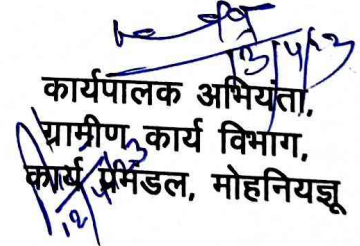 13/4/23
कार्यपालक अभियंता,
ग्रामीण कार्य विभाग,
कार्य प्रमंडल, मोहनियज्ञू